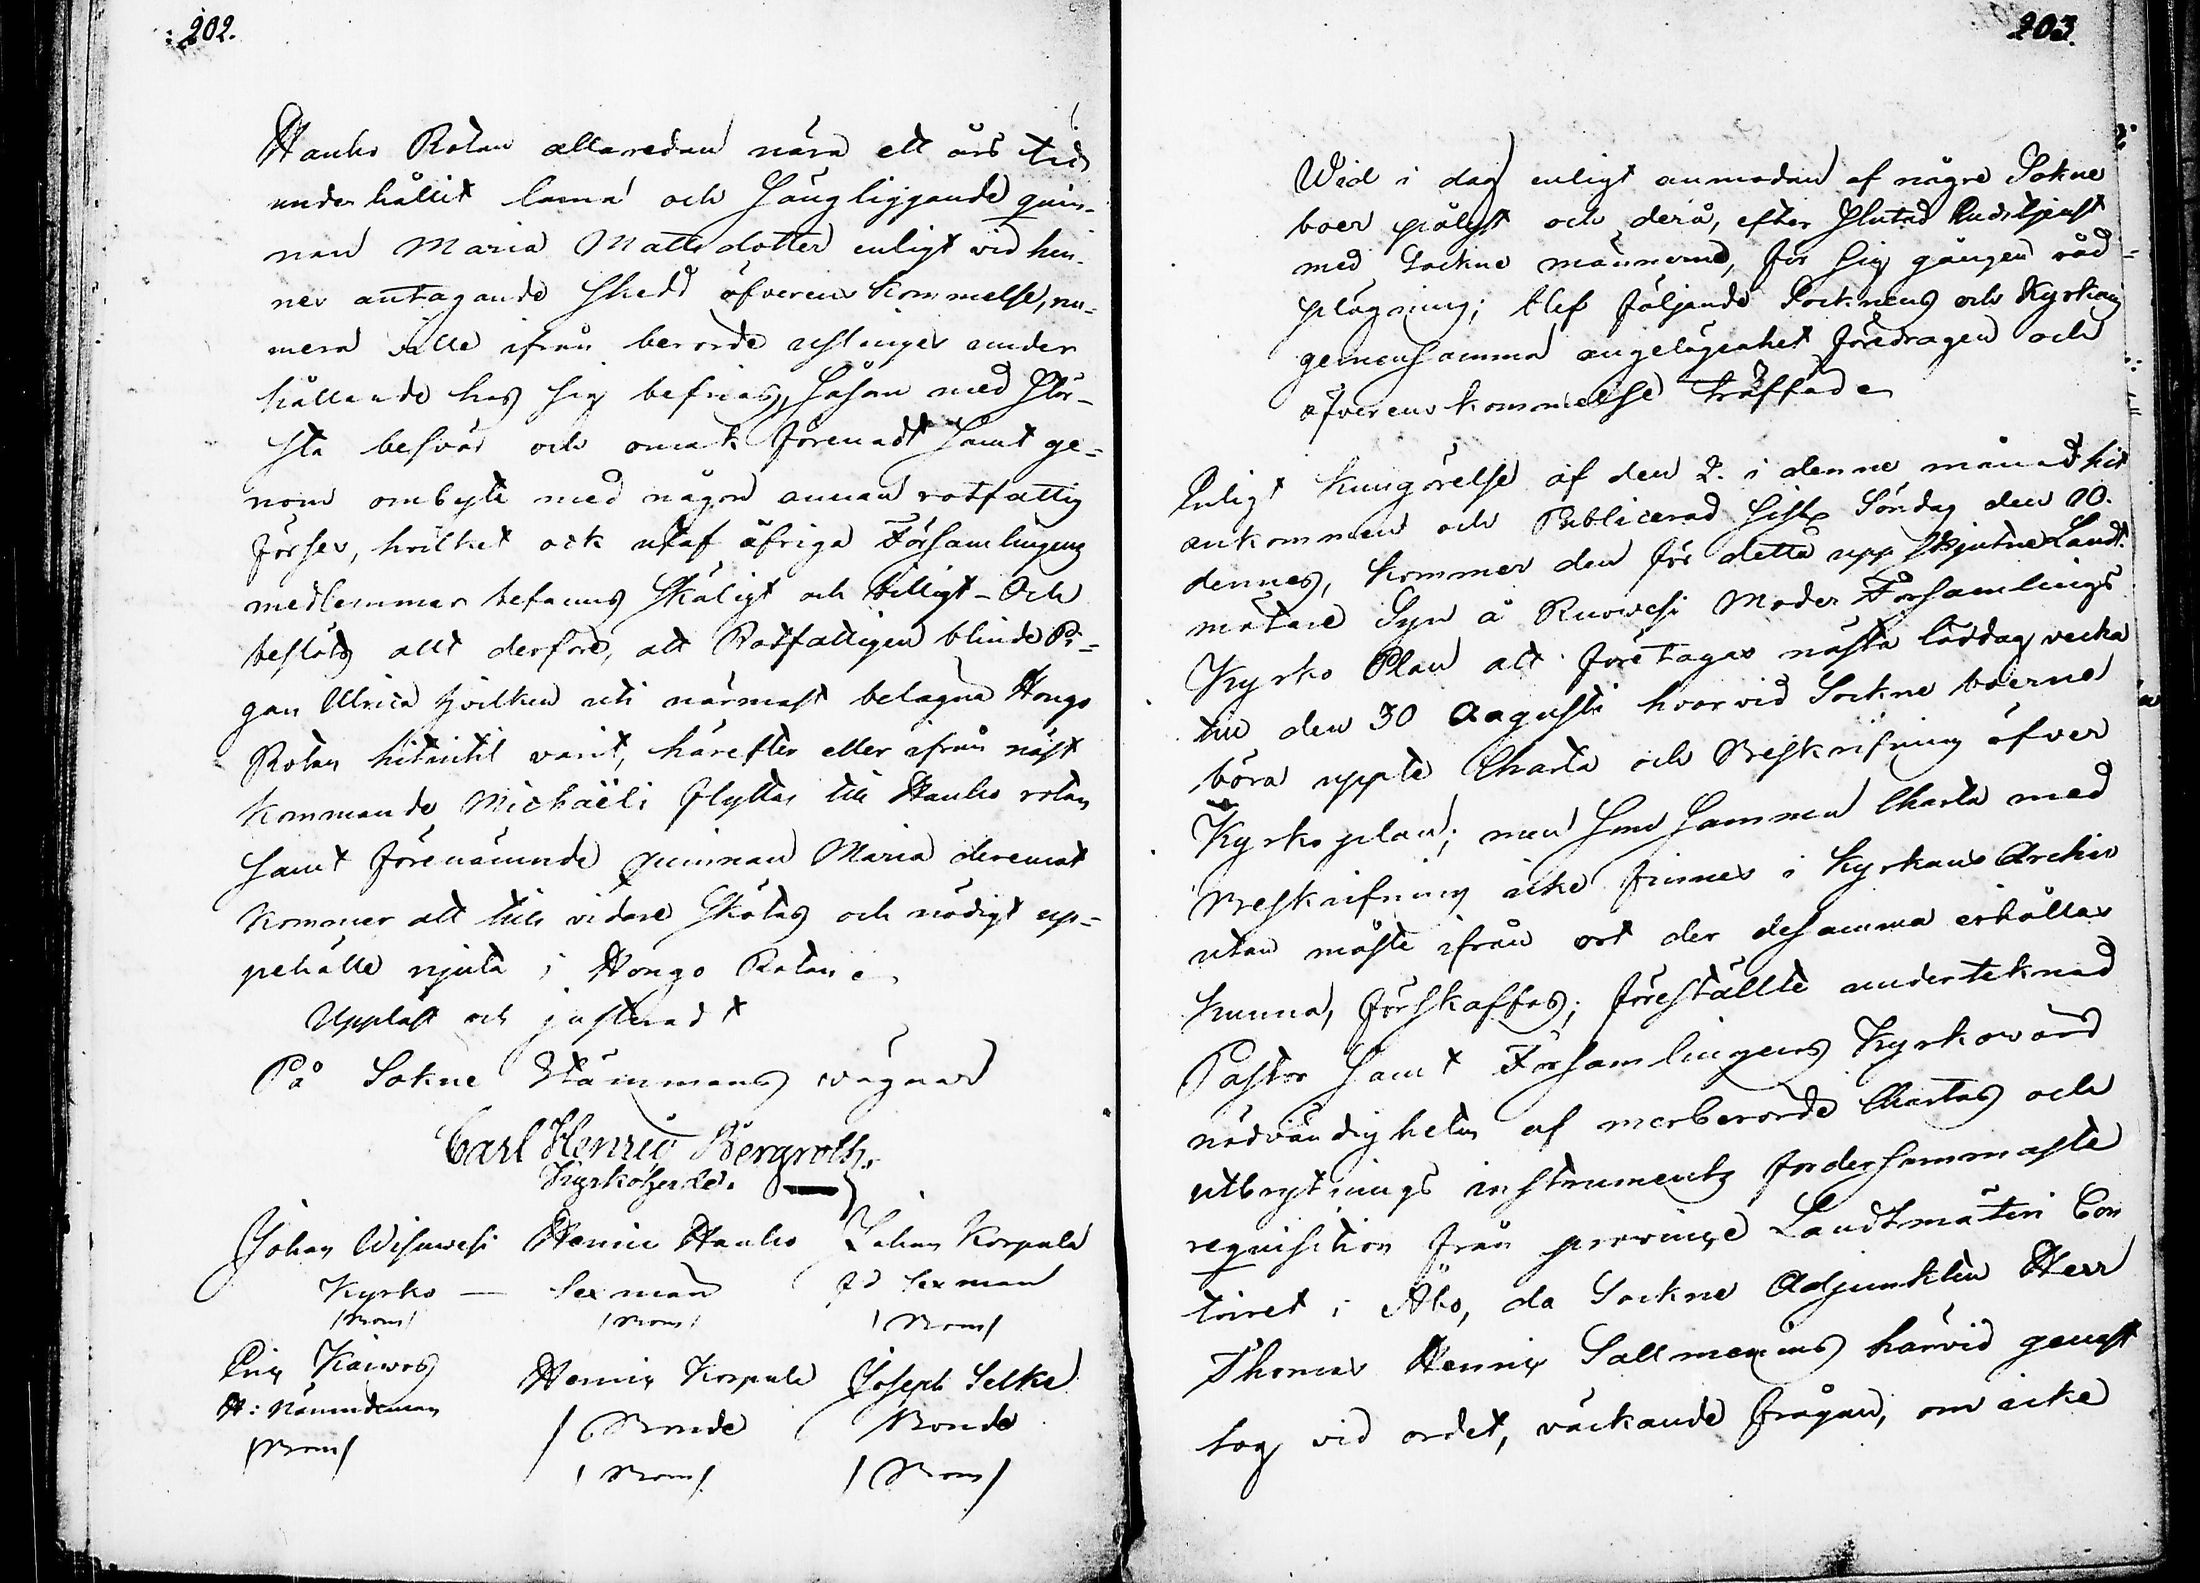 202.
Hauho Rotan allaredan nära ett års tid
underhållit lama och Säng liggande quin-
nan Maria Mattsdotter enligt vid hen-
nes antagande Skedd öfverens kommelse, nu-
mera ville ifrån berörde uslinges under
hållande hos sig befrias, såsom med Stör-
sta besvär och omak förenadt samt ge-
nom ombyte med någon annan rotfattig
förses, hvilket ock utaf öfriga Församlingens
medlemmar befanns Skäligt och billigt - Och
beslöts allt derföre, att Rotfattigen blinde Pi-
gan Ulrica hvilken uti närmast belägna Hongo
Rotan hitintil varit, härefter eller ifrån näst
kommande Michaëli flyttas till Hauho rotan
samt förenämnde quinnan Maria deremot
kommer att tills vidare Skötas och nödigt up-
pehälle njuta i Hongo Rotan.
Uppläst och justeradt
På Sokne Stämmans vägnar
Carl Henric Bergroth.
Kyrkoherde.
Johan Wisuwesi Henric Hauho Johan Korpula
Kyrko — Sexman fd Sexman
(Bom) (Bom) (Bom)
Eric Kaiwos Henric Korpula Joseph Selke
H: Nämndeman Bonde Bonde
(Bom) (Bom) (Bom)
203.
Wid i dag enligt anmodan af någre Sokne
boer pålyst och derå, efter Slutad Gudstjenst
med Sockne männerne, för Sig gången råd-
plägning; blef följande Socknens och Kyrkans
gemensamma angelägenhet föredragen och
öfverenskommelse träffad
Enligt kungörelse af den 2. i denne månad hit
ankommen och Publicerad Sistl. Söndag den 10.
dennes, kommer den för detta upp Skjutne Landt
mätare Syn å Ruowesi Moder Församlings
Kyrko Plan att företagas nästa löddag vecka
till den 30 Augusti hvarvid Sockne boerne
böra uppte Charta och Beskrifning öfver
Kyrkoplan; men Som Samma Charta med
Beskrifning icke finnes i Kyrkans Archiv
utan måste ifrån ort der desamma erhållas
kunna, förskaffas; föreställte underteknad
Pastor Samt Församlingens Kyrkovärd
nödvändigheten af merberörde Chartas och
utbrytnings instruments fordersammaste
requisition från provinçe Landtmäteri Con
toiret i Åbo, da Sockne Adjunkten Herr
Thomas Henric Sallmenius härvid genast
tog vid ordet, väckande frågan, om icke